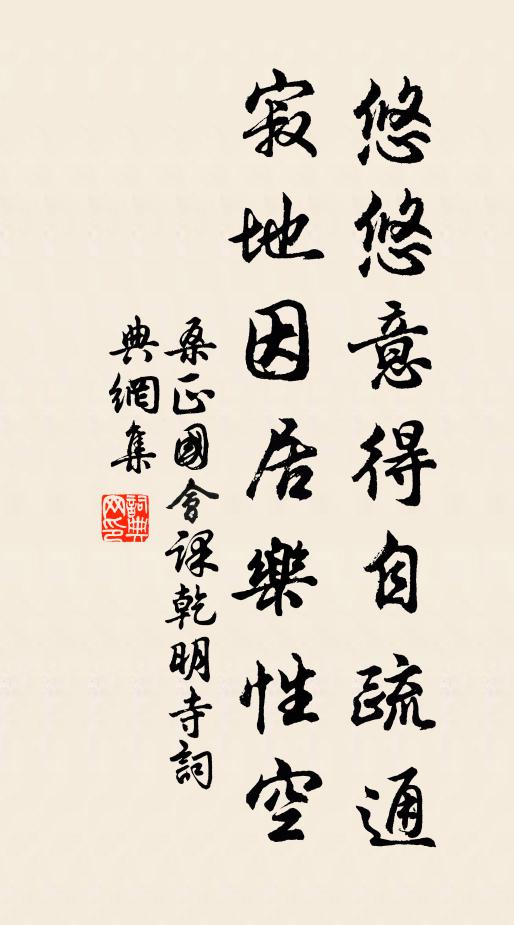 悠悠意得自疏通
寂地因居樂性空
桑正國會課乾明寺詞
典網集
詞典網印